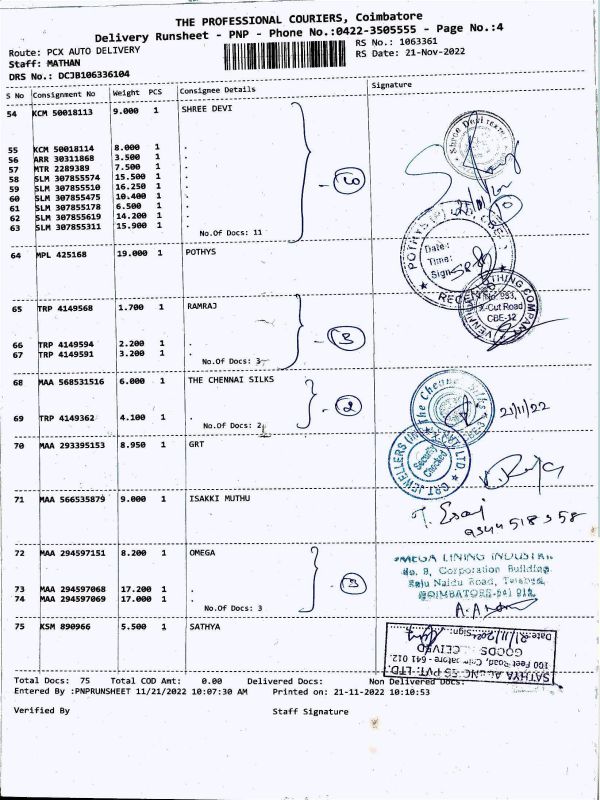 THE PROFESSIONAL COURIERS, Coimbatore
Delivery Runsheet - PNP - Phone No.:0422-3505555 - Page No.:4
Route: PCX AUTO DELIVERY
RS No.: 1063361
Staff: MATHAN
RS Date: 21-Nov-2022
DRS No.: DCJB106336104
S No Consignment No Weight PCS Consignee Details Signature
54 KCM 50018113 9.000 1 SHREE DEVI
55 KCM 50018114 8.000 1 .
56 ARR 30311868 3.500 1 .
57 MTR 2289389 7.500 1 .
58 SLM 307855574 15.500 1 .
59 SLM 307855510 16.250 1 .
60 SLM 307855475 10.400 1 .
61 SLM 307855178 6.500 1 .
62 SLM 307855619 14.200 1 .
63 SLM 307855311 15.900 1 .
No.Of Docs: 11
64 MPL 425168 19.000 1 POTHYS
Date:
Time:
Sign
RECEIVED
65 TRP 4149568 1.700 1 RAMRAJ
X-Cut Road
CBE-12
66 TRP 4149594 2.200 1 .
67 TRP 4149591 3.200 1 .
No.Of Docs: 3
3
68 MAA 568531516 6.000 1 THE CHENNAI SILKS
The Chennai Silks
2
21/11/22
69 TRP 4149362 4.100 1 .
No.Of Docs: 2
70 MAA 293395153 8.950 1 GRT
GRT JEWELLERS
Security
Checked
71 MAA 566535879 9.000 1 ISAKKI MUTHU
9344518358
72 MAA 294597151 8.200 1 OMEGA
OMEGA LINING INDUSTRI
No. 9, Corporation Building
Raju Naidu Road,
COIMBATORE-641 012
73 MAA 294597068 17.200 1 .
74 MAA 294597069 17.000 1 .
No.Of Docs: 3
3
75 KSM 890966 5.500 1 SATHYA
SATHYA AGENCIES PVT. LTD.
100 Feet Road,
641 012.
GOODS RECEIVED
Date: Sign:
Total Docs: 75 Total COD Amt: 0.00 Delivered Docs: Non Delivered Docs:
Entered By :PNPRUNSHEET 11/21/2022 10:07:30 AM Printed on: 21-11-2022 10:10:53
Verified By Staff Signature